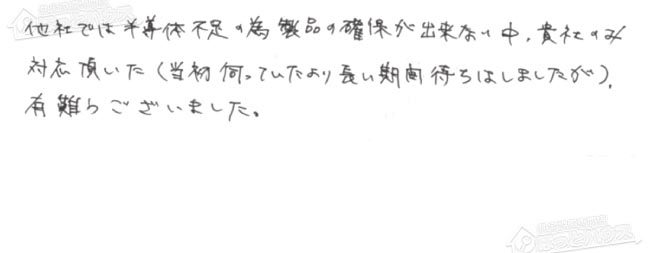 他社では半導体不足の為製品の確保が出来ない中、貴社のみ
対応頂いた(当初伺っていたより長い期間待ちはしましたが)、
有難うございました。